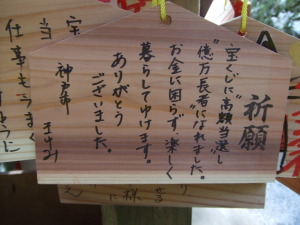 祈願
宝くじに"高額当選し
"億万長者"になれました。
お金に困らず楽しく
暮らしてゆけます。
ありがとう
ございました。
神戸市
宝
当
仕事もうまく